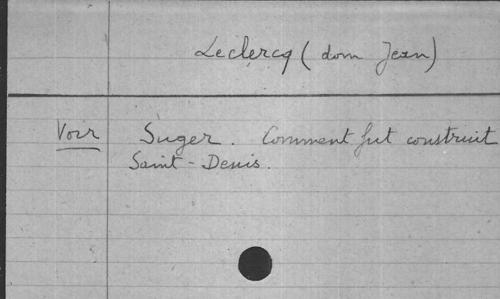 Leclercq (dom Jean)
Voir Suger. Comment fut construit
Saint-Denis.